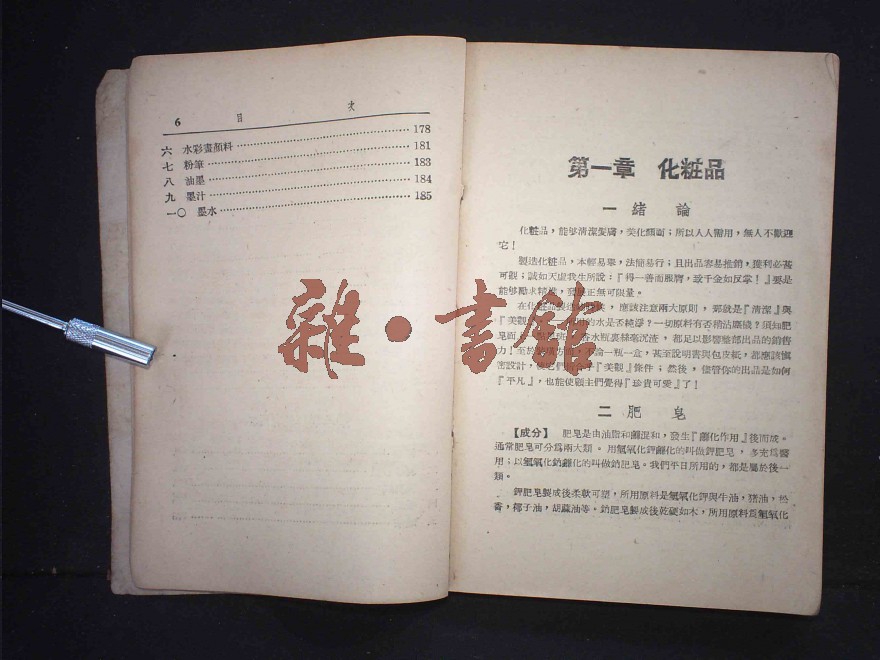 6 目 次
六 水彩畫顏料 178
七 粉筆 181
八 油墨 183
九 墨汁 184
一〇 墨水 185
第一章 化粧品
一 緒論
化粧品,能够清潔髮膚,美化顏面;所以人人需用,無人不歡迎
它!
製造化粧品,本輕易舉,法簡易行;且出品容易推銷,獲利必甚
可觀;誠如天虛我生所說:『得一善而服膺,致千金如反掌!』要是
能够勵求精進,發展正無可限量。
在化粧品製造,應該注意兩大原則,那就是『清潔』與
『美觀』用的水是否純淨?一切原料有否稍沾塵穢?須知肥
皂面香水瓶裏樣毫沉澱,都足以影響整部出品的銷售
力!至於論一瓶一盒,甚至說明書與包皮紙,都應該慎
密設計,『美觀』條件;然後,儘管你的出品是如何
『平凡』,也能使顧主們覺得『珍貴可愛』了!
二 肥皂
【成分】 肥皂是由油脂和鹼混和,發生『鹼化作用』後而成。
通常肥皂可分爲兩大類。用氫氧化鉀鹼化的叫做鉀肥皂,多充爲醫
用;以氫氧化鈉鹼化的叫做鈉肥皂。我們平日所用的,都是屬於後一
類。
鉀肥皂製成後柔軟可塑,所用原料是氫氧化鉀與牛油,豬油,松
香,椰子油,胡蔴油等。鈉肥皂製成後乾硬如木,所用原料爲氫氧化
雜·書館